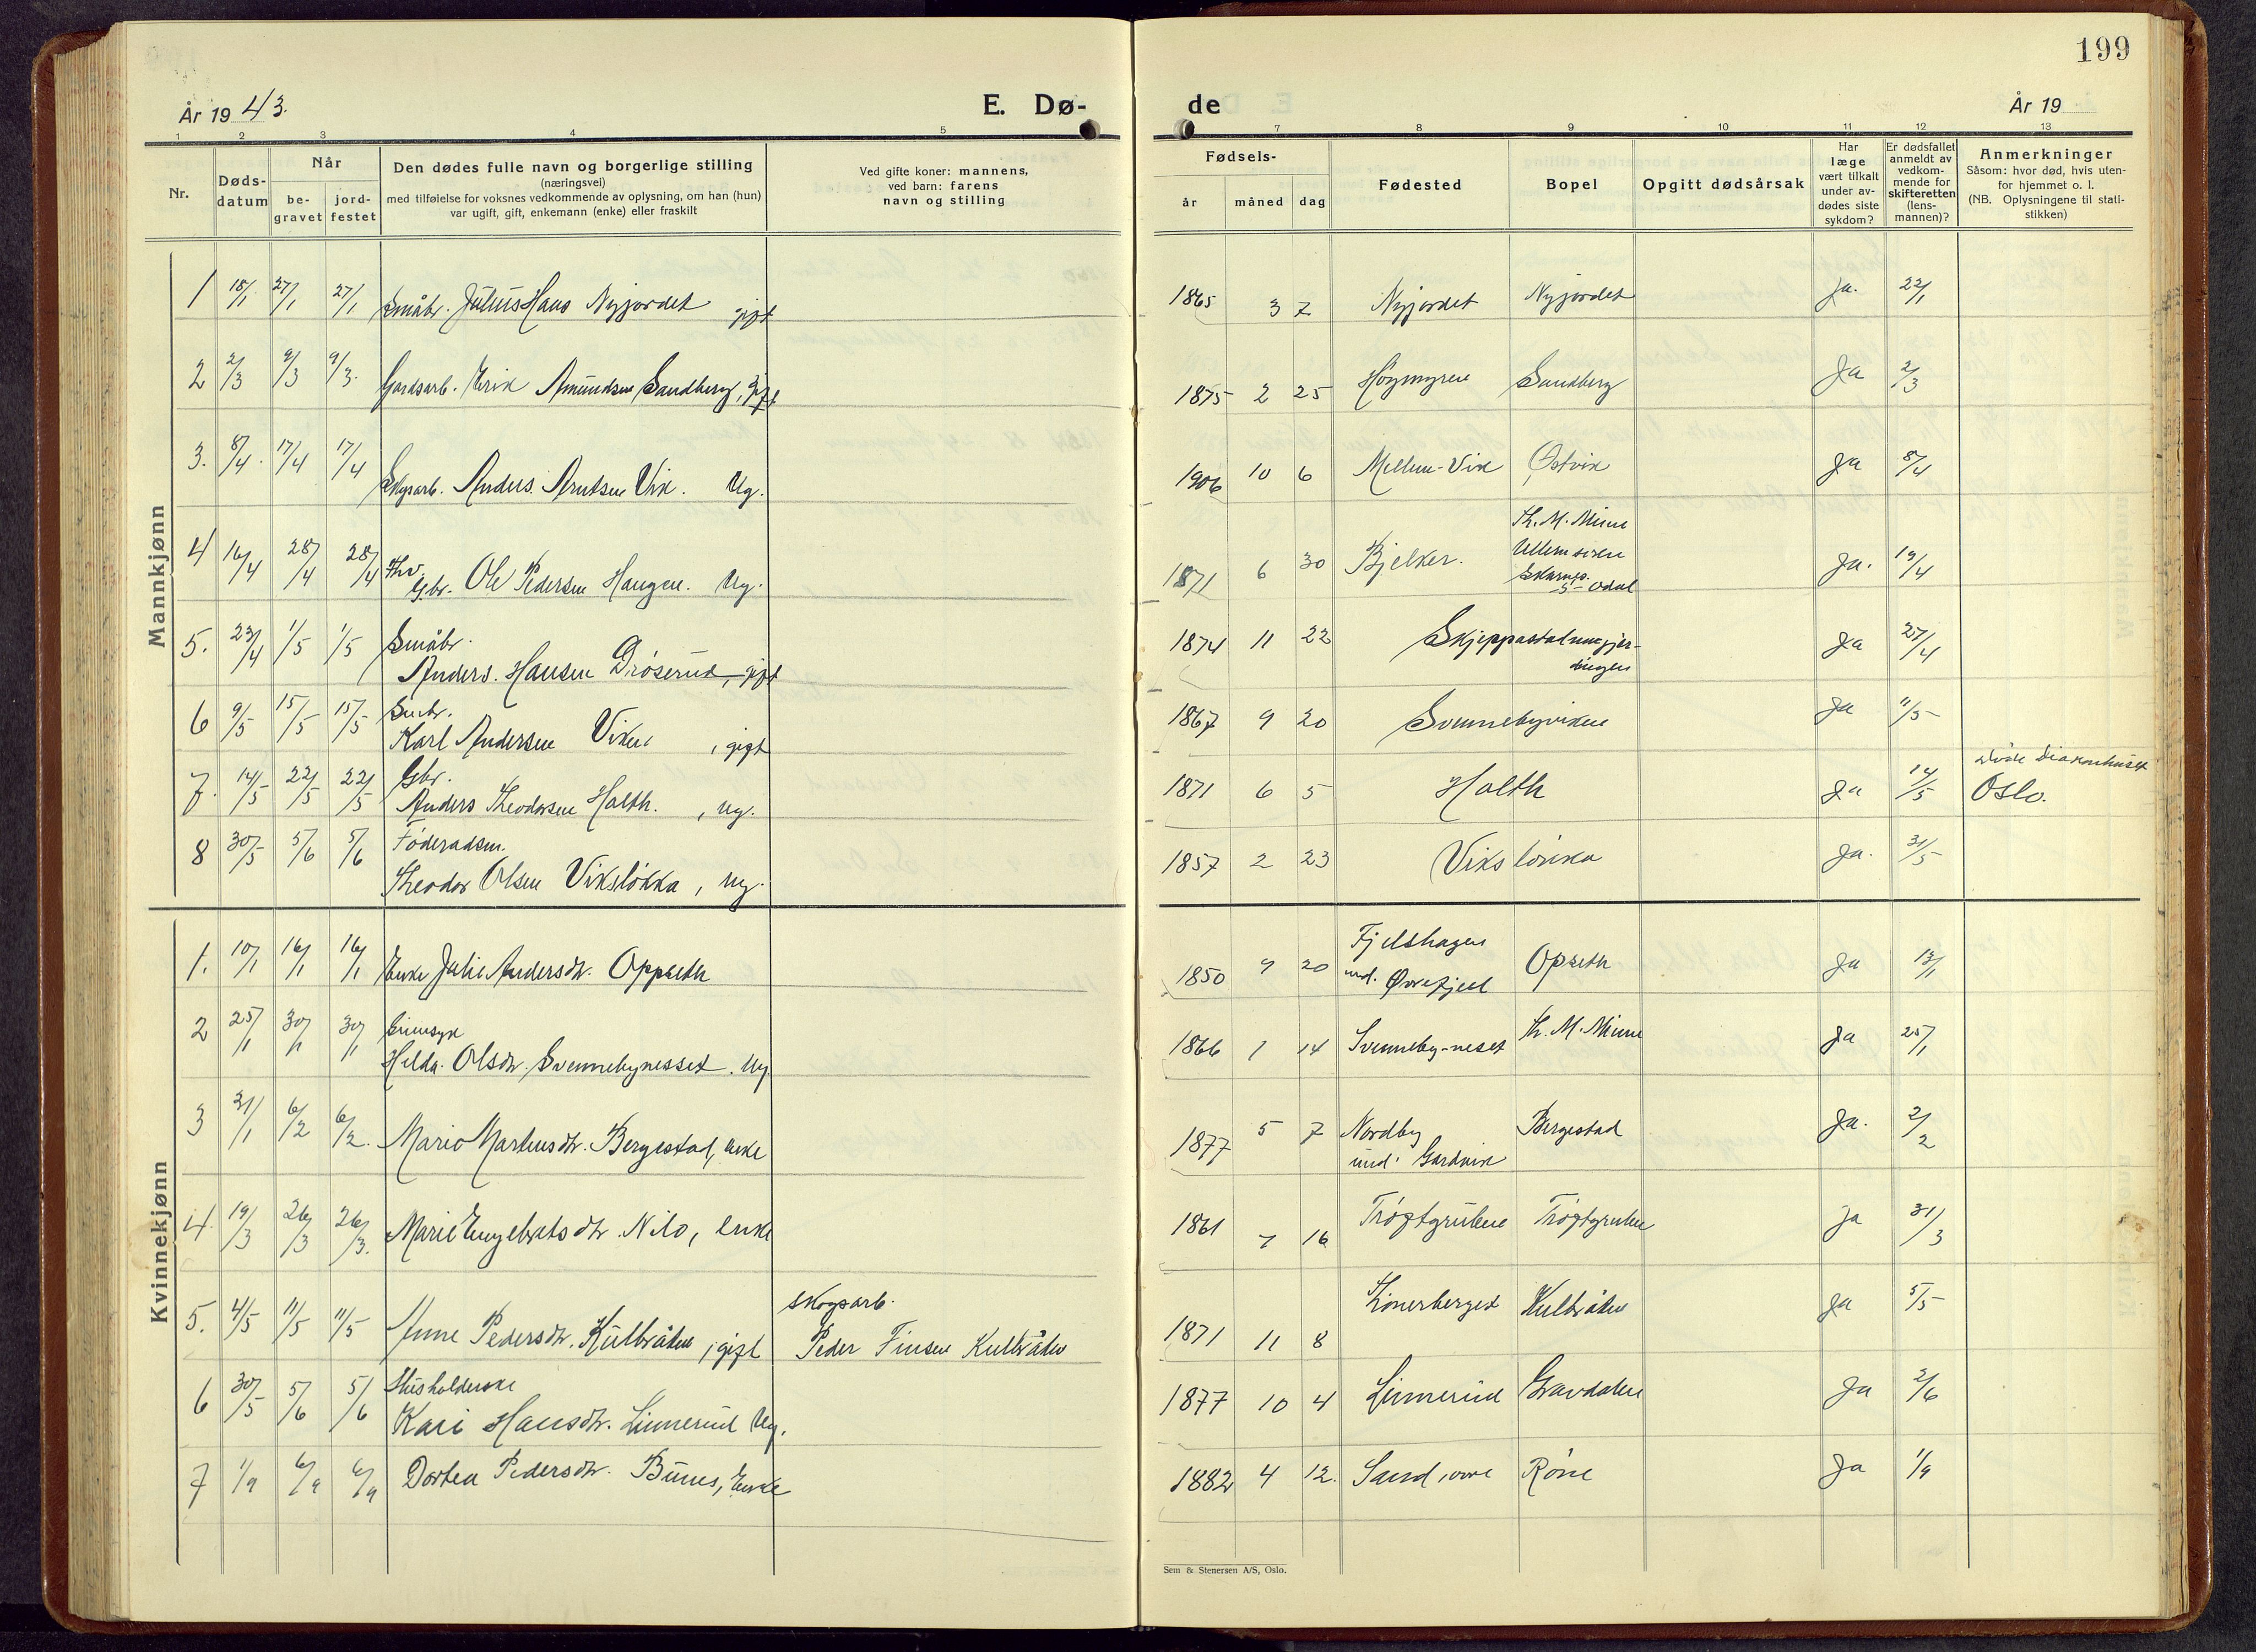 199
År 19 43.
E. Dø-
de
År 19
1 2 3 4 5
7 8 9 10 11 12 13
Nr.
Døds-
datum
Når
be-
gravet
jord-
festet
Den dødes fulle navn og borgerlige stilling
(næringsvei)
med tilføielse for voksnes vedkommende av oplysning, om han (hun)
var ugift, gift, enkemann (enke) eller fraskilt
Ved gifte koner: mannens,
ved barn: farens
navn og stilling
Fødsels-
år måned dag
Fødested
Bopel
Opgitt dødsårsak
Har
læge
vært tilkalt
under av-
dødes siste
sykdom?
Er dødsfallet
anmeldt av
vedkom-
mende for
skifteretten
(lens-
mannen)?
Anmerkninger
Såsom: hvor død, hvis uten-
for hjemmet o. l.
(NB. Oplysningene til stati-
stikken)
Mannkjønn
1 18/1 27/1 27/1 Småbr. Julius Hans Nyjordet gift 1865 3 7 Nyjordet Nyjordet Ja. 22/1
2 2/3 9/3 9/3. Gardsarb. Erik Amundsen Sandberg, gift 1875 2 25 Høgmyren Sandberg Ja 2/3
3. 8/4. 17/4 17/4 Skogsarb. Anders Arntsen Vik. Ug. 1906 10 6 Mellem-Vik Østvik Ja 8/4
4 16/4 28/4 28/4 Fhv.
Gbr. Ole Pedersen Haugen. Ug. 1871 6 30 Bjelker. Th. M. Minne
Skarnes
S-Odal Ja. 19/4
5. 23/4 1/5 1/5 Småbr.
Anders Hansen Drøserud, gift 1874 11 22 Skjeppastadumgjer-
dingen Ja 27/4
6 9/5 15/5 15/5 Smbr.
Karl Andersen Viken, gift 1867 9 20 Svennebyviken Ja 11/5
7. 14/5 22/5 22/5 Gbr.
Anders Theodorsen Holth. , ug. 1871 6 5 Holth Ja 14/5 døde Diakonhuset
Oslo.
8 30/5 5/6 5/6 Føderadsm.
Theodor Olsen Viksløkka, ug. 1857 2 23 Viksløkka Ja. 31/5
Kvinnekjønn
1. 10/1 16/1 16/1 Enke Julie Andersdtr. Oppseth 1850 9 20 Fjelshagen
und. Øvrefjeld Opseth Ja 13/1
2 25/1 30/1 30/1 Sinnsyk
Helda Olsdtr. Svennebynesset. Ug. 1866 1 14 Svenneby-neset Th. M. Minne Ja 25/1
3 31/1 6/2 6/2. Marie Martinsdtr. Bergestad, enke 1877 5 7 Nordby
und. Gardvik Bergestad Ja. 2/2
4. 19/3 26/3 26/3. Marie Engebretsdtr. Nilo, enke 1861 7 16 Trøftgruben Trøftgruben Ja 31/3
5. 4/5 11/5 11/5 Anne Pedersdtr. Kulbråten, gift skogsarb.
Peder Finsen Kulbråten 1871 11 8 Kulbråten Ja 5/5
6 30/5 5/6 5/6 Husholderske
Kari Hansdtr. Linnerud Ug. 1877 10 4 Linnerud Gravdalen Ja 2/6
7 1/9 6/9 6/9 Dorthea Pedersdtr. Bunes, Enke 1882 4 12. Sand, øvre Røne Ja 1/9
Sem & Stenersen A/S, Oslo.